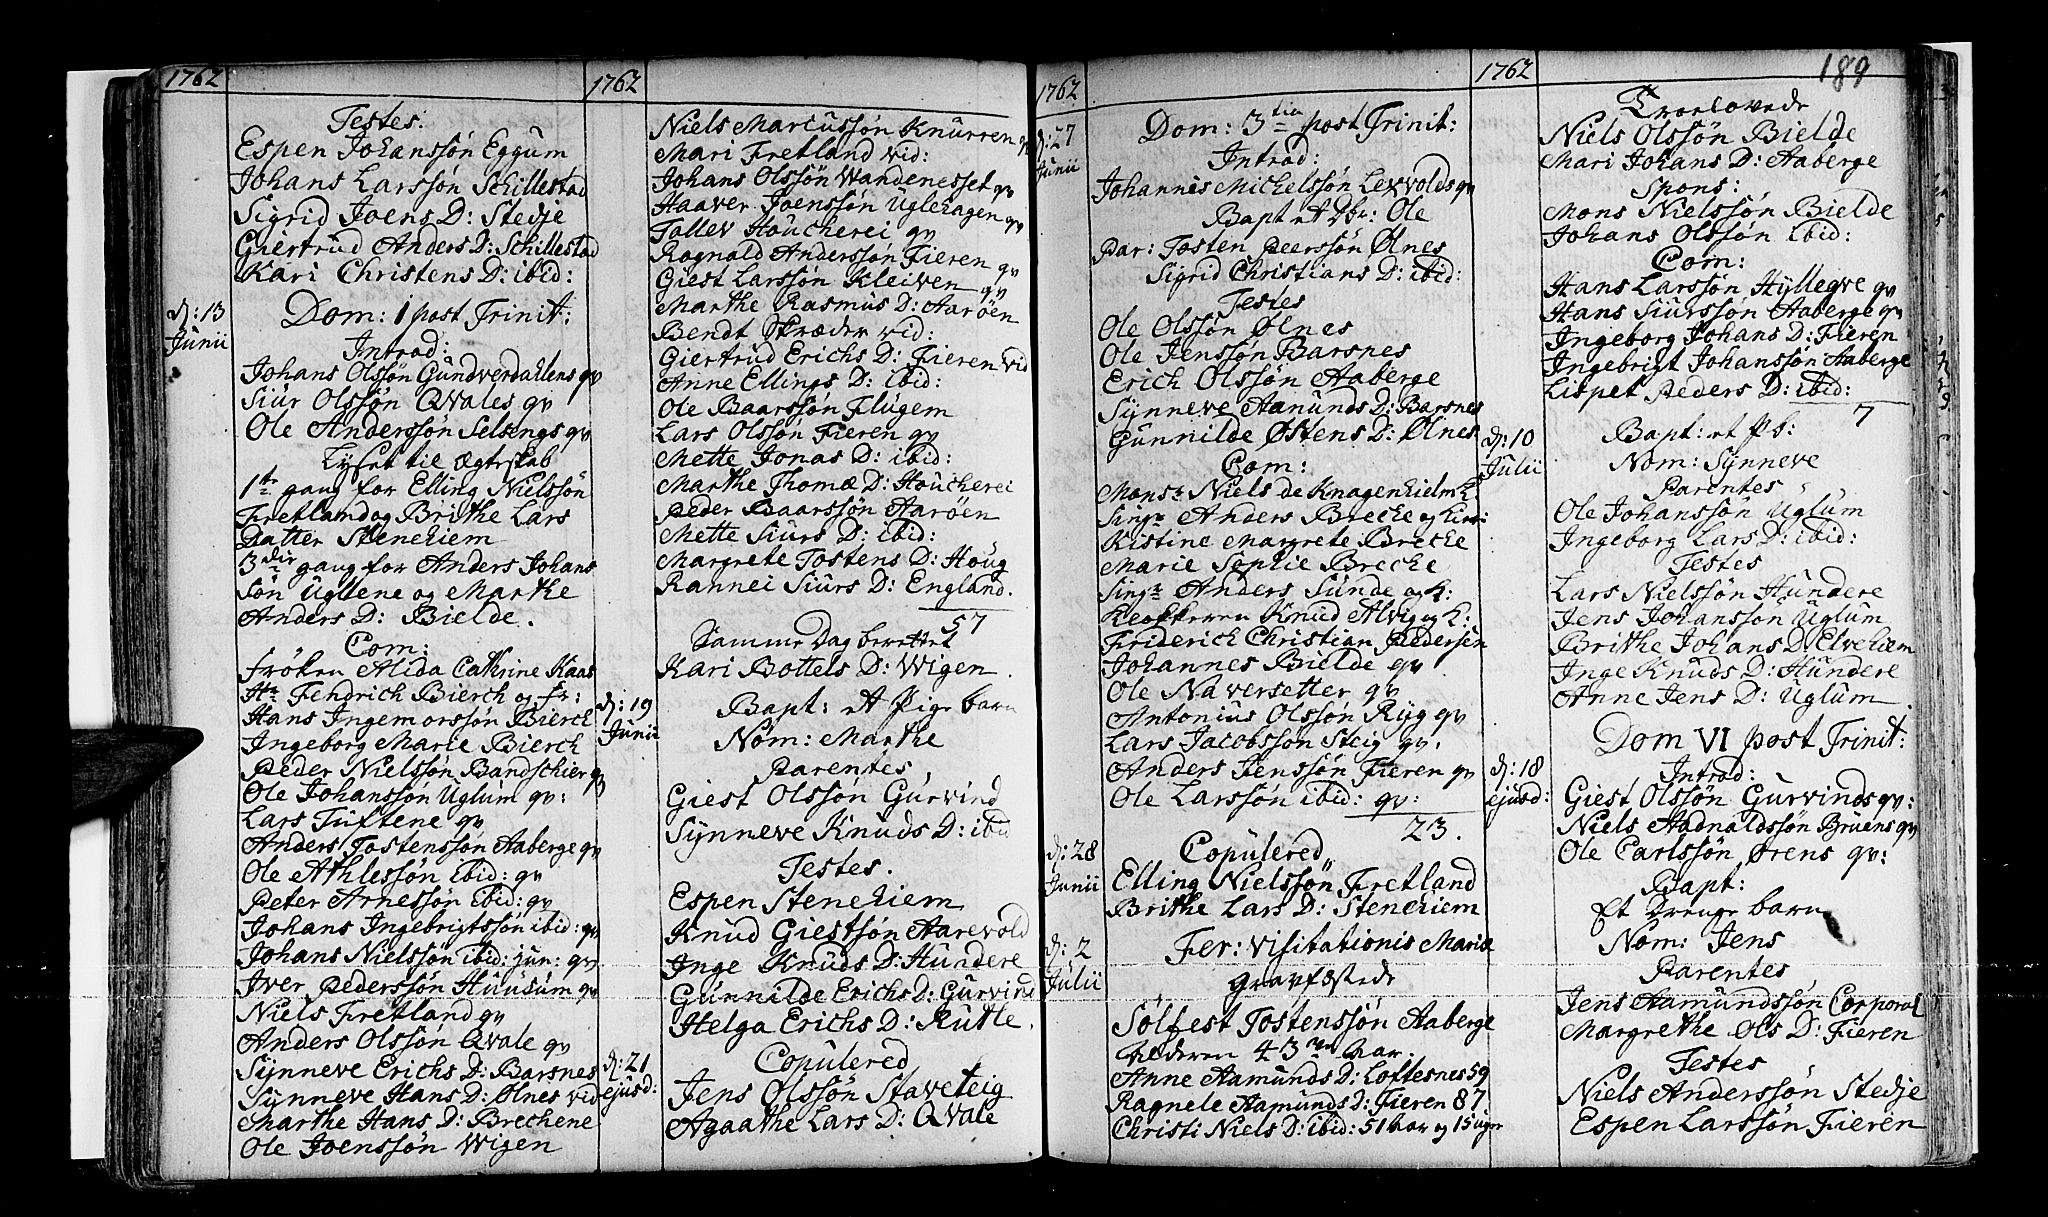 1762
Testes:
Espen Johanssøn Eggum
Johans Larssøn Schillestad
Sigrid Joens D: Stedje
Giertrud Anders D: Schillestad
Kari Christens D: ibid:
d: 13 Junii
Dom: 1 post Trinit:
Introd:
Johans Olssøn Gundverdahlens qv
Siur Olssøn Qvales qv
Ole Anderssøn Selsengs qv
Lyset til Ægteskab
1te gang for Elling Nielssøn
Fretland og Brithe Lars
Datter Stenehiem
3die gang for Anders Johans
søn Uglene og Marthe
Anders D: Bielde.
Com:
Frøken Alida Cathrine Kaas
Hr Fendrich Bierch og fr:
Hans Ingemorssøn Bierch
Ingeborg Marie Bierch
Peder Nielssøn Bandschier qv
Ole Johanssøn Uglum qv:
Lars Tuftene qv
Anders Tostenssøn Aaberge qv
Ole Athlessøn ibid: qv
Peter Arnessøn ibid: qv
Johans Ingebrigtssøn ibid: qv
Johans Nielssøn ibid: jun: qv
Iver Pederssøn Huusum qv
Niels Fretland qv
Anders Olssøn Qvale qv
Synneve Erichs D: Barsnes
Synneve Hans D: Ølnes vid
Marthe Hans D: Brechene
Ole Joenssøn Wigen
1762
Niels Marcussøn Knurren qv
Mari Fretland vid:
Johans Olssøn Wandenesset qv
Haaver Joenssøn Uglehagen qv
Tollev Houcherei qv
Rognald Anderssøn Fieren qv
Giest Larssøn Kleiven qv
Marthe Rasmus D: Aarøen
Bendt Skræder vid:
Giertrud Erichs D: Fieren vid
Anne Ellings D: ibid:
Ole Baarssøn Flugem
Lars Olssøn Fieren qv
Mette Jonas D: ibid:
Marthe Thomæ D: Houcherei
Peder Baarssøn Aarøen
Mette Siurs D: ibid:
Margrete Tostens D: Houg
Rannei Siurs D: England.
57
Samme Dag berettet
Kari Bottels D: Wigen.
d: 19 Junii
Bapt: et Pige barn
Nom: Marthe
Parentes
Giest Olssøn Gurvind
Synneve Knuds D: ibid
Testes.
Espen Stenehiem
Knud Giestsøn Aarevold
Inge Knuds D: Hundere
Gunnilde Erichs D: Gurvind
Helga Erichs D: Rutle.
d: 21 ejusd:
Copulered
Jens Olssøn Staveteig
Agaathe Lars D: Qvale
1762
d: 27 Junii
Dom: 3tia post Trinit:
Introd:
Johannis Michelssøn Levvolds qv
Bapt et Dbr: Ole
Par: Tosten Peerssøn Ølnes
Sigrid Christians D: ibid:
Testes
Ole Olssøn Ølnes
Ole Jenssøn Barsnes
Erich Olssøn Aaberge
Synneve Aamunds D: Barsnes
Gunnilde Østens D: Ølnes
Com:
Monsr Niels de Knagenhielm K:
Singr Anders Breche og
Kistine Margrete Breche
Marie Sophie Breche
Singr Anders Sunde og K:
Klokkeren Knud Alvig og K:
Friderich Christian Pedersen
Johannes Bielde qv
Ole Naversetter qv
Antonius Olssøn Ryg qv
Lars Jacobssøn Steig qv.
Anders Jenssøn Fieren qv
Ole Larssøn ibid: qv:
23.
d: 28 Junii
Copulered
Elling Nielssøn Fretland
Brithe Lars D: Stenehiem
d: 2 Julii
Fer: Visitationis Mariæ
Gravfæstede
Sølfest Tostenssøn Aaberge
Alderen 43 Aar.
Anne Aamunds D: Loftesnes 59
Ragnele Aamunds D: Fieren 87
Christi Niels D: ibid: 51 Aar og 15 uger
1762
189
Troelovede
Niels Olssøn Bielde
Mari Johans D: Aaberge
Spons:
Mons Nielssøn Bielde
Johans Olssøn ibid:
Com:
Hans Larssøn Hyllegve qv
Hans Siurssøn Aaberge qv
Ingeborg Johans D: Fieren
Ingebrigt Johanssøn Aaberge
Lispet Peders D: ibid:
7
d: 10 Julii
Bapt: et Pb:
Nom: Synneve
Parentes
Ole Johanssøn Uglum
Ingeborg Lars D: ibid:
Testes
Lars Nielssøn Hundere
Jens Johanssøn Uglum
Brithe Johans D: Elvehiem
Inge Knuds D: Hundere
Anne Jens D: Uglum.
Dom VI post Trinit:
d: 18 ejusd:
Introd:
Giest Olssøn Gurvinds qv:
Niels Aadnaldssøn Bruens qv
Ole Carlssøn Ørens qv:
Bapt:
Et Drenge barn
Nom: Jens
Parentes
Jens Aamundssøn Corporal
Margrethe Ols D: Fieren
Testes
Niels Anderssøn Stedje
Espen Larssøn Fieren